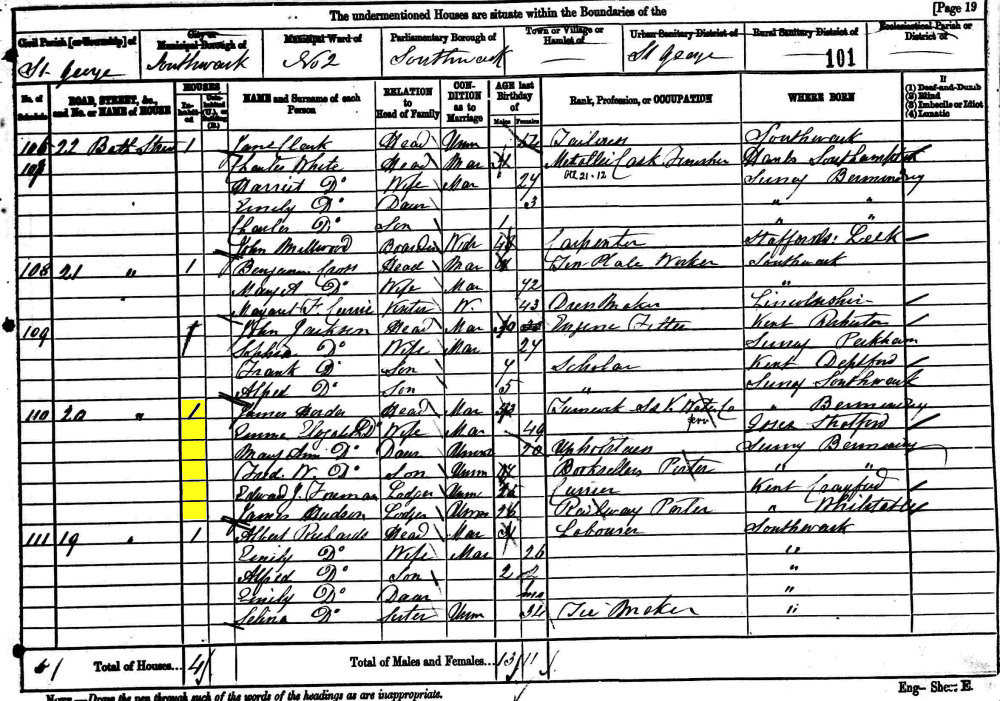 The undermentioned Houses are situate within the Boundaries of the
[Page 19
Civil Parish [or Township] of
City or Municipal Borough of
Municipal Ward of
Parliamentary Borough of
Town or Village or Hamlet of
Urban Sanitary District of
Rural Sanitary District of
Ecclesiastical Parish or District of
St. George
Southwark
No 2
Southwark
St George
101
No. of Schedule
ROAD, STREET, &c., and No. or NAME of HOUSE
HOUSES
Inhabited
Uninhabited (U.), or Building (B.)
NAME and Surname of each Person
RELATION to Head of Family
CONDITION as to Marriage
AGE last Birthday of
Males
Females
Rank, Profession, or OCCUPATION
WHERE BORN
If
(1) Deaf-and-Dumb
(2) Blind
(3) Imbecile or Idiot
(4) Lunatic
106 22 1 Jane Clark Head Unm Tailoress Southwark
Charles White Head Mar Hants Southampton
Harriet Do Wife Mar 24 Surrey Bermondsey
Emily Do Daur 3 " "
Charles Do Son 1 " "
John Millwood Boarder Carpenter Leek
108 21 " 1 Benjamin Head Mar Tin Plate Worker Southwark
Mary A Do Wife Mar 42 "
Margaret F. W. 43 Dress Maker Lincolnshire
109 John Jackson Head Mar Engine Fitter Kent
Sophia Do Wife Mar 27 Surrey Peckham
Frank Do Son 7 Scholar Kent Deptford
Alfred Do Son 5 " Surrey Southwark
110 20 " 1 James Head Mar " Bermondsey
Emma Elizabeth Do Wife Mar 49 Stratford
Mary Ann Do Daur 20 Surrey Bermondsey
Fred. W. Do Son Unm Booksellers Porter " "
Edward J. Lodger Unm 25 Currier Kent Crayford
James Hudson Lodger 26 Railway Porter " Whitstable
111 19 " 1 Albert Richards Head Mar Labourer Southwark
Emily Do Wife Mar 26 "
Alfred Do Son 2 "
Emily Do Daur "
Selina Do Sister Unm 34 Tie Maker "
Total of Houses... 4
Total of Males and Females... 13 11
NOTE.—Draw the pen through such of the words of the headings as are inappropriate.
Eng—Sheet E.